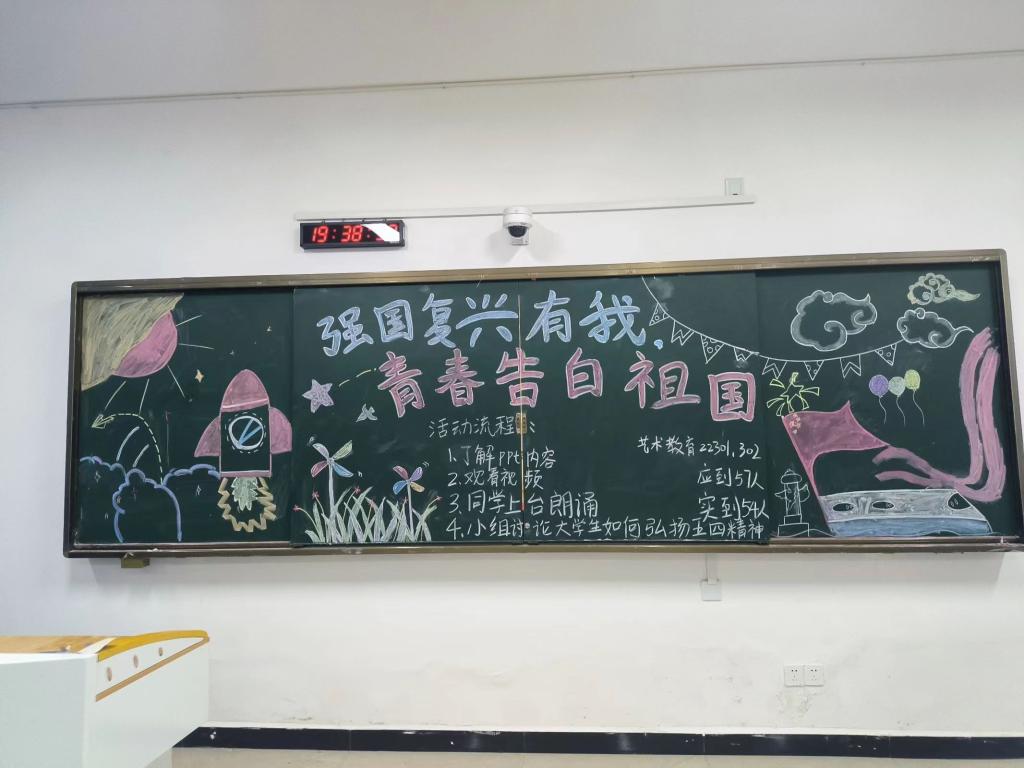 19:38
强国复兴有我,
青春告白祖国
活动流程:
1.了解ppt内容
2.观看视频
3.同学上台朗诵
4.小组讨论大学生如何弘扬五四精神
艺术教育22301,302
应到57人
实到54人